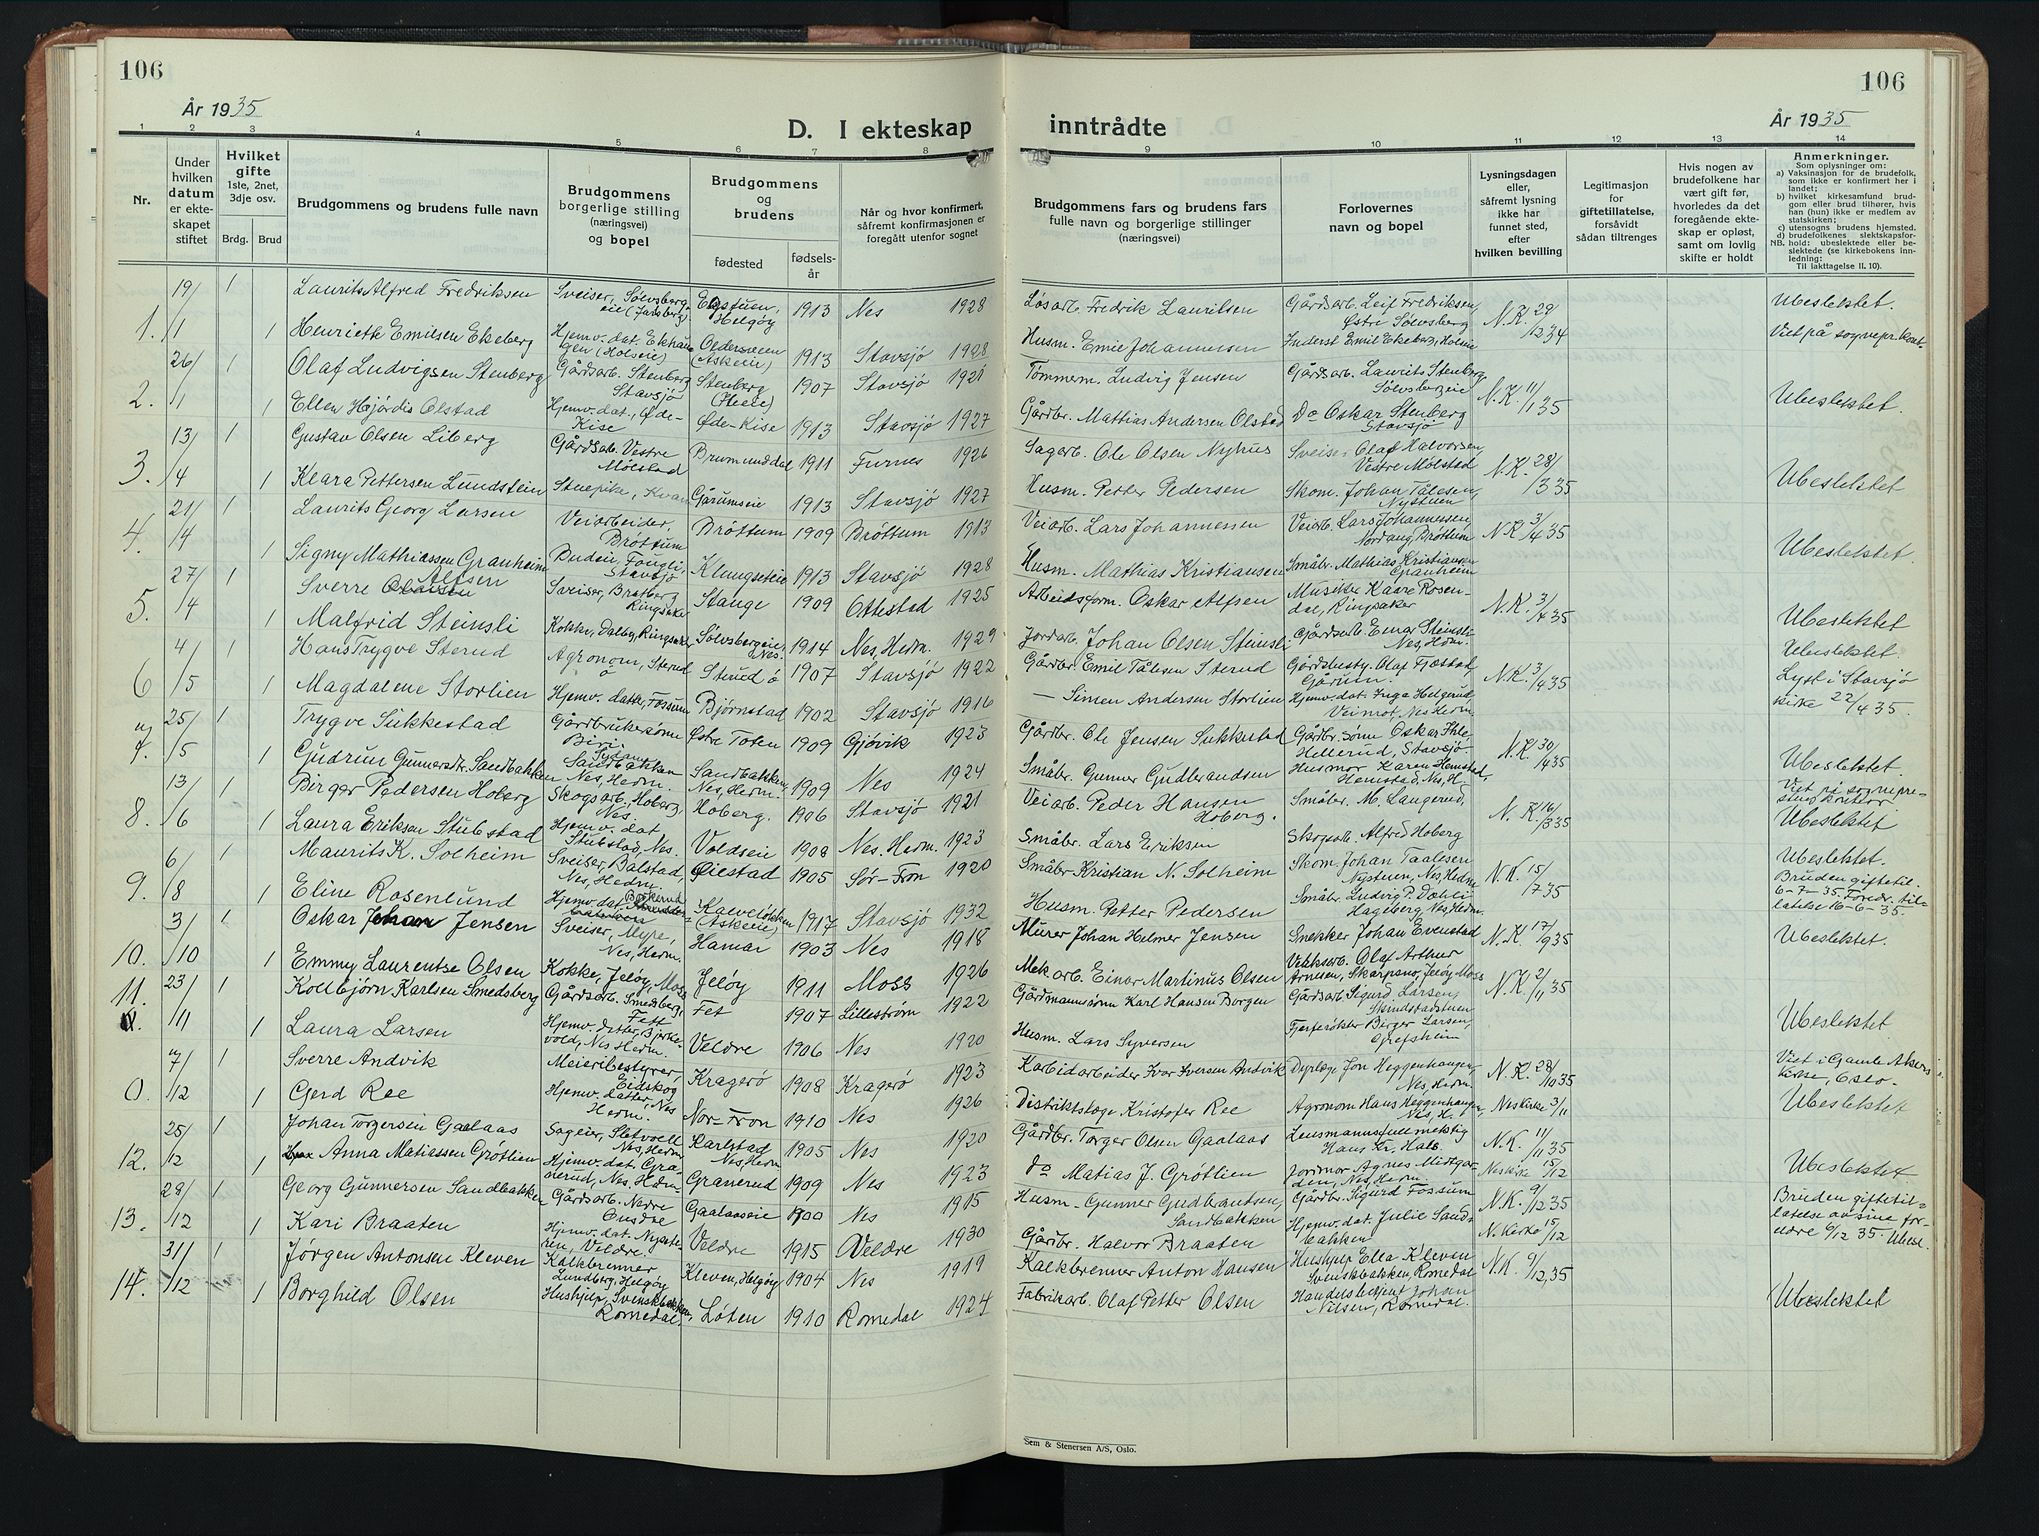 106
År 1935
D. I ekteskap
1 2 3 4 5 6 7 8
Nr.
Under hvilken datum er ekteskapet stiftet
Hvilket gifte 1ste, 2net, 3dje osv.
Brdg. Brud
Brudgommens og brudens fulle navn
Brudgommens borgerlige stilling (næringsvei) og bopel
Brudgommens og brudens
fødested
fødselsår
Når og hvor konfirmert, såfremt konfirmasjonen er foregått utenfor sognet
1. 19/1 1 Laurits Alfred Fredriksen Sveiser, Sølvsbergeie Helgøy 1913 Nes 1928
1 Henriette Emilsen Ekeberg Hjemv. dat. (Askeie) 1913 Stavsjø 1928
2. 26/1 1 Olaf Ludvigsen Stenberg Gårdsarb. Stenberg Stavsjø Stenberg 1907 Stavsjø 1921
1 Ellen Hjørdis Olstad Hjemv. dat., Øde-Kise Øde-Kise 1913 Stavsjø 1927
3. 13/4 1 Gustav Olsen Liberg Gårdsarb. Vestre Mølstad Brumunddal 1911 Furnes 1926
1 Klara Pettersen Lundstein Stuepike, Gårumseie 1913 Stavsjø 1927
4. 21/4 1 Laurits Georg Larsen Veiarbeider, Brøttum Brøttum 1909 Brøttum 1913
1 Signy Mathiassen Granheim Budeie, Fougli, Stavsjø Klungseteie 1913 Stavsjø 1928
5. 27/4 1 Sverre Alfsen Sveiser, Bratberg Ringsaker Stange 1909 Ottestad 1925
1 Malfrid Steinsli Kokke, Dalby, Ringsaker Sølvsbergeie, Nes. 1914 Nes, Hedm. 1929
6 4/5 1 Hans Trygve Sterud Agronom, Sterud Sterud ø 1907 Stavsjø 1922
1 Magdalene Storlien Hjemv. datter, Fossum Bjørnstad 1902 Stavsjø 1916
7. 25/5 1 Trygve Sukkestad Gårdbrukersønn Biri. Østre Toten 1909 Gjøvik 1923
1 Gudrun Gunnersdtr. Sandbakken Sandbakken Nes, Hedm. Sandbakken, Nes, Hedm. 1909 Nes 1924
8. 13/6 1 Birger Pedersen Hoberg Skogsarb. Hoberg, Nes Hoberg. 1906 Stavsjø 1921
1 Laura Eriksen Stubstad Hjemv. dat. Stubstad, Nes. Voldseie 1908 Nes. Hedm. 1923
9. 6/8 1 Maurits K. Solheim Sveiser, Balstad, Nes, Hedm. Øiestad 1905 Sør-Fron 1920
1 Eline Rosenlund Hjemv. dat. Kalveløkken (Askeie) 1917 Stavsjø 1932
10. 3/10 1 Oskar Johan Jensen Sveiser, Myre, Nes, Hedm. Hamar 1903 Nes 1918
1 Emmy Laurentse Olsen Kokke, Jeløy, Moss Jeløy 1911 Moss 1926
11. 23/11 1 Kollbjørn Karlsen Smedsberg Gårdsarb. Smedsberg, Fett Fet 1907 Lillestrøm 1922
1 Laura Larsen Hjemv. datter, Bjerkevold, Nes Hedm. Veldre 1906 Nes 1920
0. 7/12 1 Sverre Andvik Meieribestyrer, Eidskog Kragerø 1908 Kragerø 1923
1 Gerd Ree Hjemv. datter, Nes Hedm. Nor-Fron 1910 Nes 1926
12. 25/12 1 Johan Torgersen Gaalaas Sageier, Sletvoll Nes, Hedm Karlstad Nes, Hedm 1905 Nes 1920
1 Anna Matiassen Grøtlien Hjemv. dat. Granerud, Nes, Hedm. Granerud 1909 Nes 1923
13. 28/12 1 Georg Gunnersen Sandbakken Gårdsarb. Nedre Gaalaaseie 1900 Nes 1915
1 Kari Braaten Hjemv. dat. Veldre. Veldre 1915 Veldre 1930
14. 31/12 1 Jørgen Antonsen Kleven Kalkbrenner Lundberg, Helgøy Kleven, Helgøy 1904 Nes 1919
1 Borghild Olsen Hushjelp, Svenskbakken, Romedal. Løten 1910 Romedal 1924
106
År 1935
inntrådte
9 10 11 12 13 14
Brudgommens fars og brudens fars fulle navn og borgerlige stillinger (næringsvei)
Forlovernes navn og bopel
Lysningsdagen eller, såfremt lysning ikke har funnet sted, efter hvilken bevilling
Legitimasjon for giftetillatelse, forsåvidt sådan tiltrenges
Hvis nogen av brudefolkene har vært gift før, hvorledes da det foregående ekteskap er opløst, samt om lovlig skifte er holdt
Anmerkninger.
Som oplysninger om:
a) Vaksinasjon for de brudefolk, som ikke er konfirmert her i landet;
b) hvilket kirkesamfund brudgom eller brud tilhører, hvis han (hun) ikke er medlem av statskirken;
c) utensogns brudens hjemsted.
d) brudefolkenes slektskapsforhold: ubeslektede eller beslektede (se kirkebokens innledning:
NB.
Til iakttagelse II. 10).
Løsarb. Fredrik Lauritsen Gårdsarb. Leif Fredriksen, Østre Sølvsberg N.K. 29/12 34 Ubeslektet.
Husm. Emil Johannessen Inderst Emil Ekeberg, Holseie Viet på sognepr. kont.
Tømmerm. Ludvig Jensen Gårdsarb. Laurits Stenberg, Sølvsbergeie N.K. 11/1 35 Ubeslektet.
Gårdbr. Mathias Andersen Olstad Do Oskar Stenberg Stavsjø
Sagarb. Ole Olsen Nyhus Sveiser Olaf Halvorsen, Vestre Mølstad N.K. 28/3 35 Ubeslektet
Husm. Petter Pedersen Skom. Johan Tålesen, Nystuen
Veiarb. Lars Johannessen Veiarb. Lars Johannessen, Nordang Brøttum N.K. 3/4 35 Ubeslektet.
Husm. Mathias Kristiansen Småbr. Mathias Kristiansen Granheim
Arbeidsform. Oskar Alfsen Musiker Kaare Rosendal, Ringsaker N.K. 3/4 35 Ubeslektet
Jordarb. Johan Olsen Steinsli Gårdsarb. Einar Steinsli Nes, Hedm.
Gårdbr. Emil Tålesen Sterud Gårdsbesty. Olaf Tjæstad, Gårum. N.K. 3/4 35 Ubeslektet.
— Simen Andersen Storlien Hjemv. dat. Inga Helgerud, Veimot, Nes Hedm. Lyst i Stavsjø kirke 22/4 35.
Gårdbr. Ole Jensen Sukkestad Gårdbr. sønn Oskar Ihle Hellerud, Stavsjø N.K. 30/4 35 Ubeslektet.
Småbr. Gunner Gudbrandsen Husmor Karen Hemstad, Hemstad, Nes, H.
Veiarb. Peder Hansen Hoberg. Småbr. M. Langerud, N.K. 16/3 35 Viet på sogneprestens kontor Ubeslektet
Småbr. Lars Eriksen Skogsarb. Alfred Hoberg
Småbr. Kristian N. Solheim Skom. Johan Taalesen Nystuen, Nes, Hedm N.K. 15/7 35 Ubeslektet. Bruden giftetil. 6-7-35. Foreldr. tillatelse 16-6-35.
Husm. Petter Pedersen Småbr. Ludvig P. Dæhli Hageberg, Nes, Hedm.
Murer Johan Helmer Jensen Snekker Johan Evenstad N.K. 17/9 35 Ubeslektet.
Mek. arb. Einar Martinus Olsen Verksarb. Olaf Arthur Arnesen, Skarpsno, Jeløy, Moss
Gårdmannssønn Karl Hansen Borgen Gårdsarb. Sigurd Larsen, N.K. 2/11 35 Ubeslektet
Husm. Lars Syversen Fjerferøkter Birger Larsen, Grefsheim
Karbidarbeider Ivar Iversen Andvik Dyrlæge Jon Heggenhaugen, Nes, Hedm N.K. 28/10 35 Viet i Gamle Akers kirke, Oslo.
Distriktslæge Kristofer Ree Agronom Hans Heggenhaugen, Nes, H. Nes kirke 3/11 Ubeslektet
Gårdbr. Torger Olsen Gaalaas Lensmannsfullmektig Hans Kr. Hals. N.K. 11/11 35
do Matias J. Grøtlien Jordmor Agnes Midtgarden, Nes, Hedm. Nes kirke 15/12 Ubeslektet
Husm. Gunner Gudbrandsen, Sandbakken Gårdbr. Sigurd Fossum N.K. 9/12 35 Bruden giftetillatelse av sine foreldre 6/12 35. Ubesl.
Gårdbr. Halvor Braaten Hjemv. dat. Julie Sandbakken N. Kirke 15/12
Kalkbrenner Anton Hansen Hushjelp Ella Kleven Svenskbakken, Romedal N.K. 9/12 35 Ubeslektet
Fabrikarb. Olaf Petter Olsen Handelsbetjent Johan Nilsen, Romedal.
Sem & Stenersen A/S, Oslo.